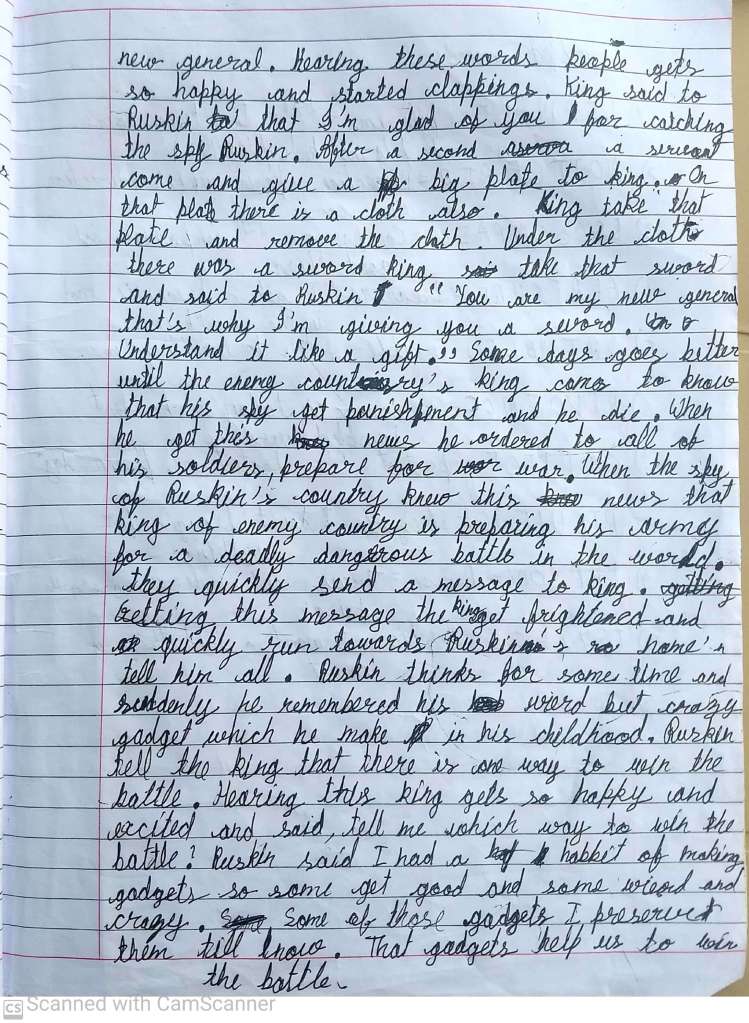 new general. Hearing these words people gets
so happy and started clappings. King said to
Ruskin that I'm glad of you for catching
the spy Ruskin. After a second a servent
come and give a big plate to king. On
that plate there is a cloth also. King take that
plate and remove the cloth. Under the cloth
there was a sword king take that sword
and said to Ruskin "You are my new general
that's why I'm giving you a sword.
Understand it like a gift." Some days goes better
until the enemy country's king came to know
that his spy get punishment and he die. When
he get this news he ordered to all of
his soldiers, prepare for war. When the spy
of Ruskin's country knew this news that
king of enemy country is preparing his army
for a deadly dangerous battle in the world.
they quickly send a message to king.
Getting this message the king get frightened and
quickly run towards Ruskin's home'n
tell him all. Ruskin thinks for some time and
suddenly he remembered his wierd but crazy
gadget which he make in his childhood. Ruskin
tell the king that there is one way to win the
battle. Hearing this king gets so happy and
excited and said, tell me which way to win the
battle? Ruskin said I had a habbit of making
gadgets so some get good and some wierd and
crazy. Some of those gadgets I preserve
them till know. That gadgets help us to win
the battle.
CS Scanned with CamScanner